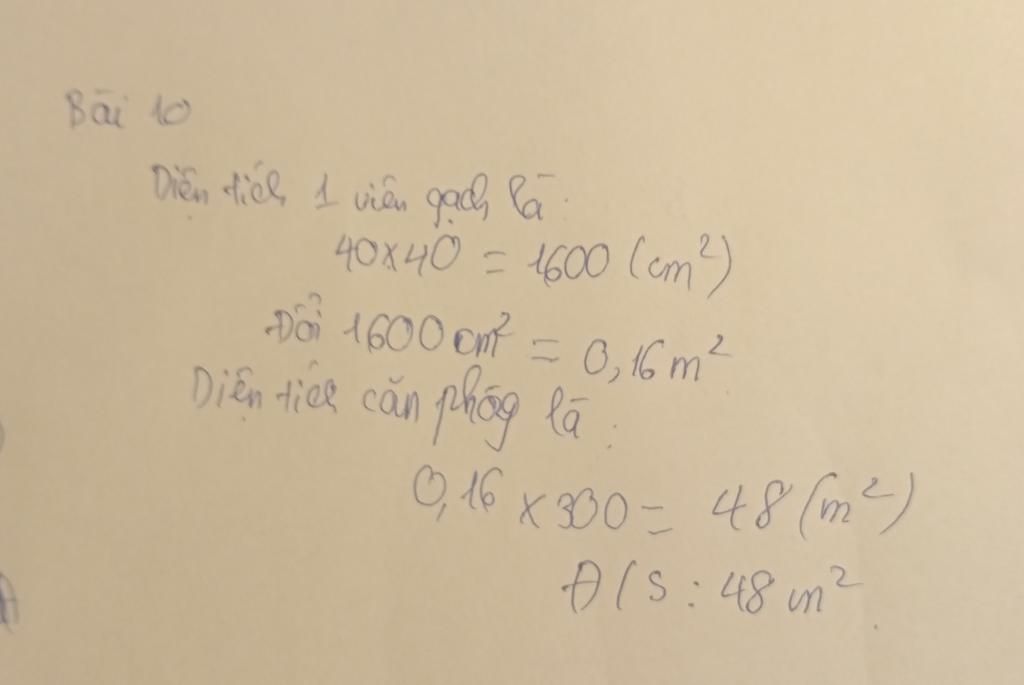 Bài 10
Diện tích 1 viên gạch là:
40x40 = 1600 (cm²)
Đổi 1600 cm² = 0,16 m²
Diện tích căn phòg là:
0,16 x 300 = 48 (m²)
Đ/S: 48 m².